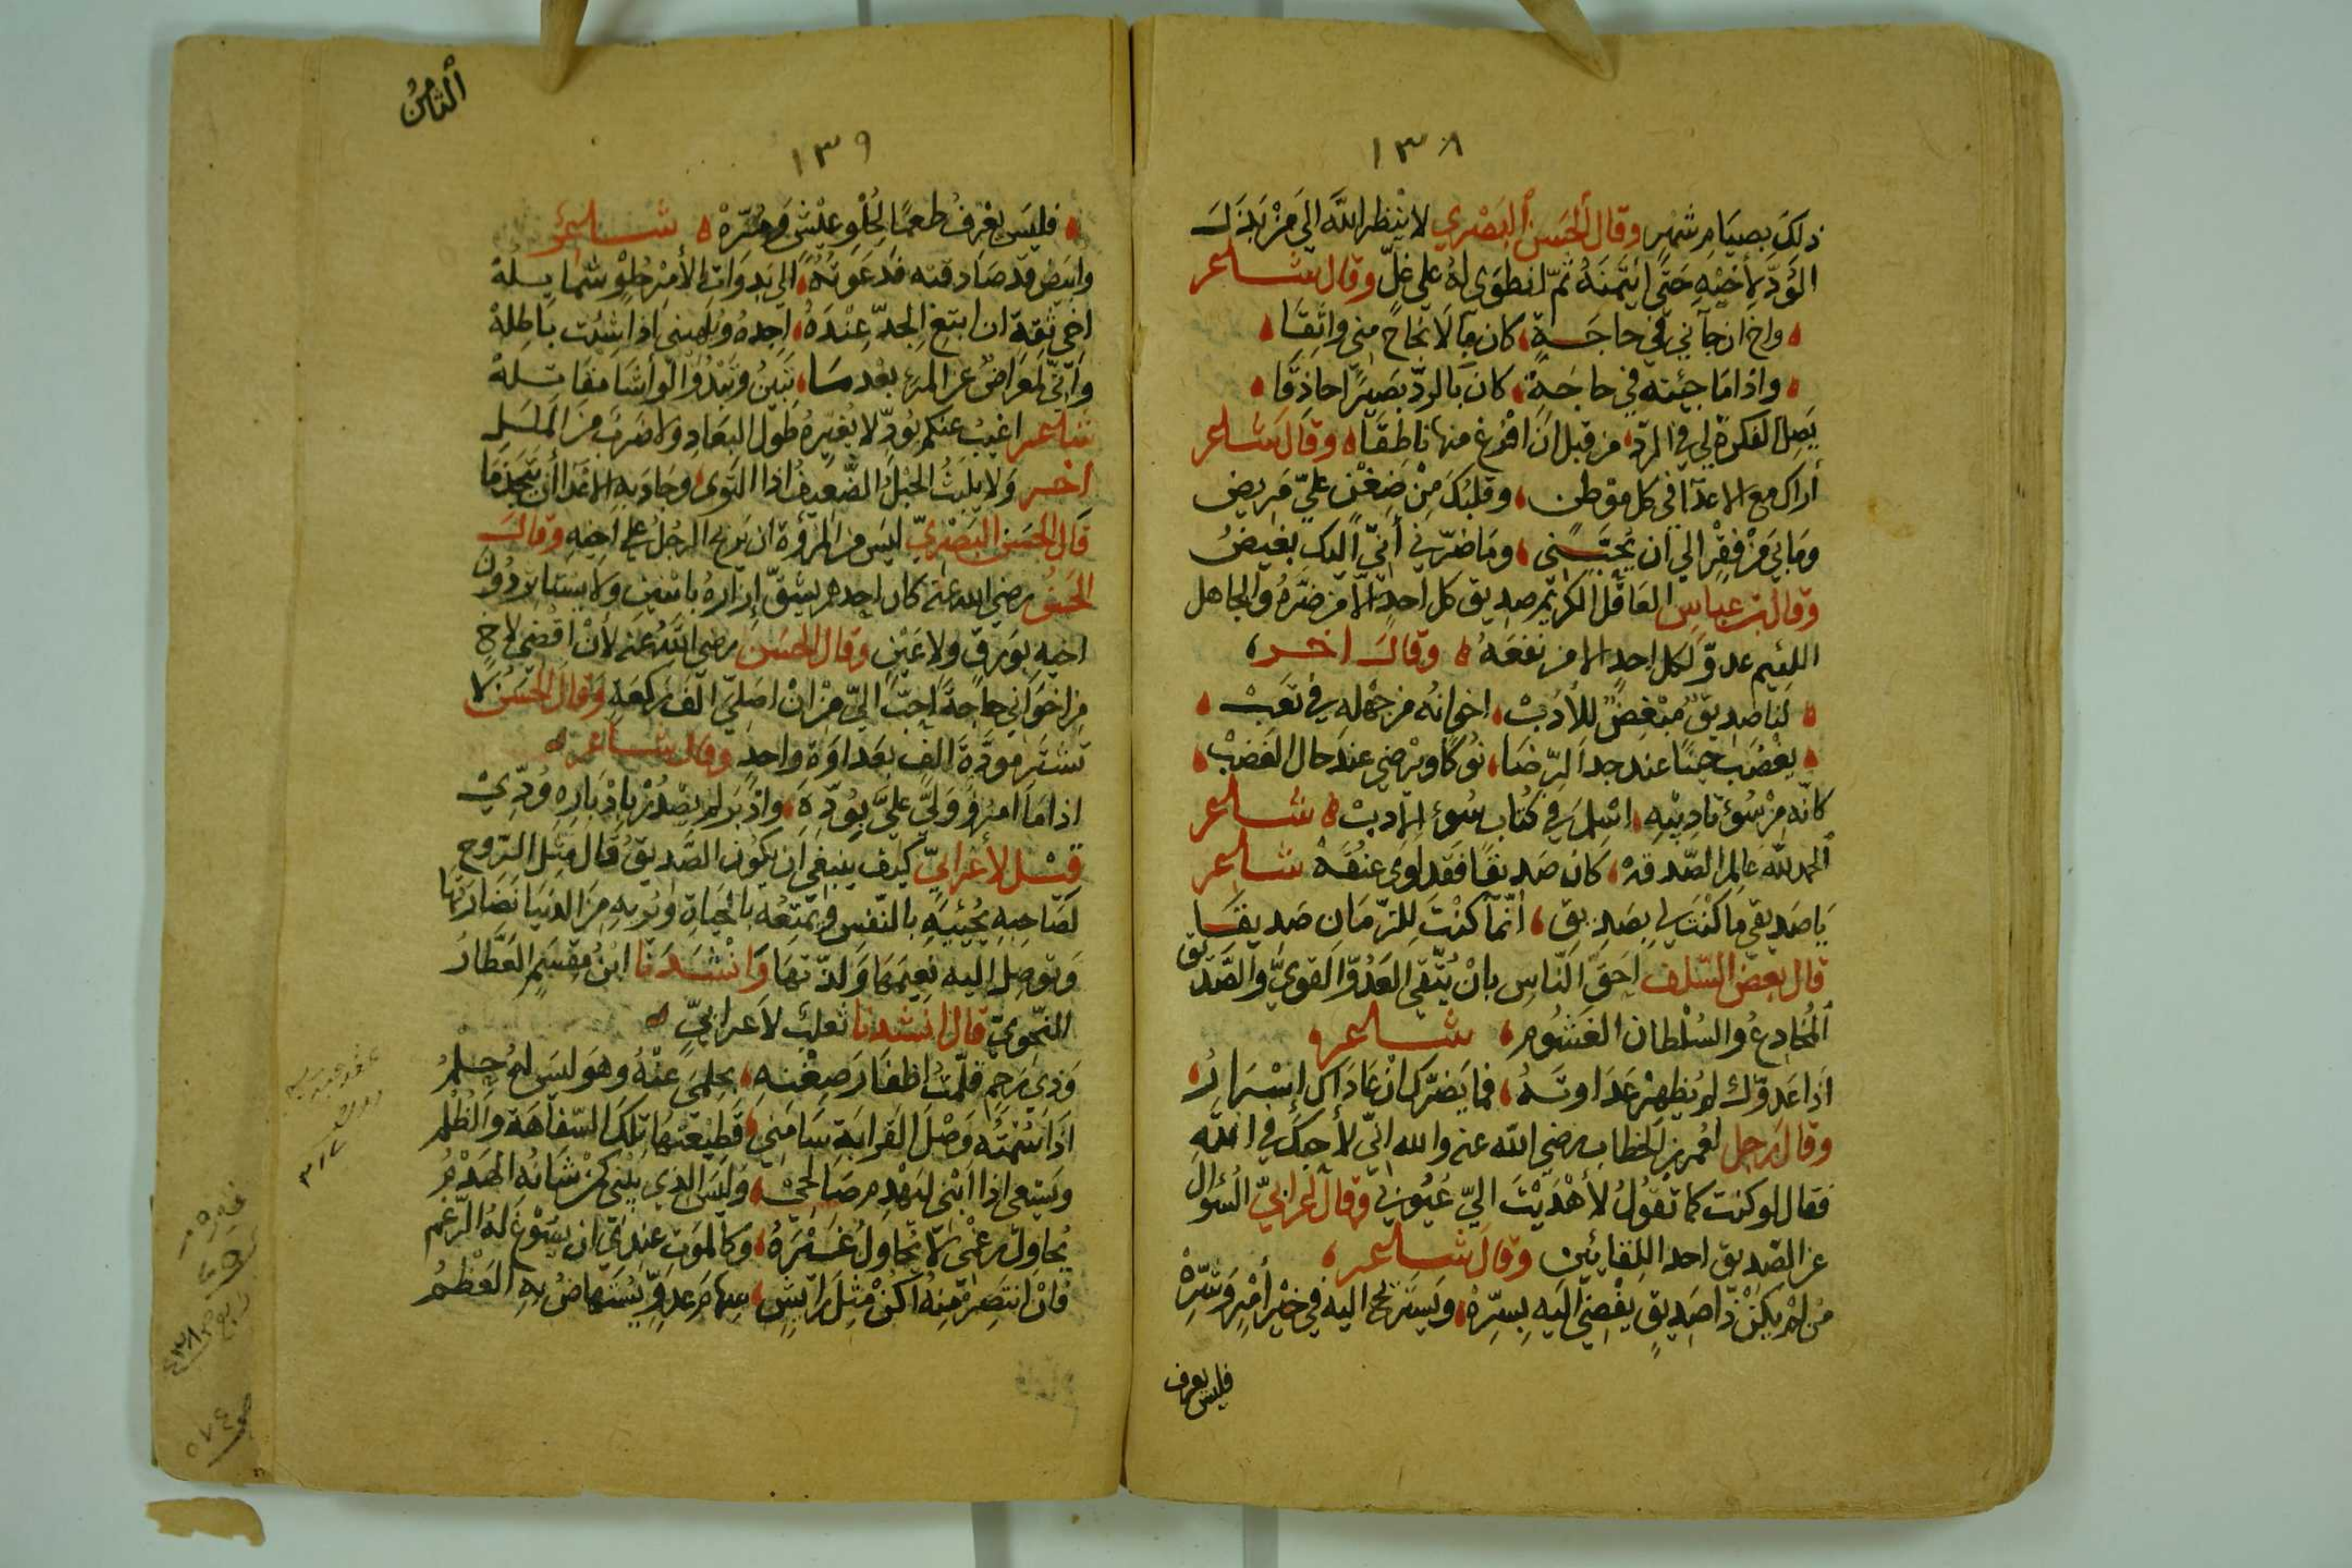 ١٣٨
ذلك بصيام شهر وقال الحسن البصري لا ينظر الله الي من بذل
الود لأخيه حتى ائتمنه ثم انطوى له على غل وقال شاعر
واخ ان جآني في حاجة كان بالانجاح مني واثقا
واذا ما جئته في حاجة كان بالرد بصيرا حاذقا
يصل الفكرة لي في الرد من قبل ان افرغ منها ناطقا وقال شاعر
أراك مع الاعدآ في كل موطن وقلبك من ضغن علي مريض
وما بي من فقر الي ان تحبني وما ضرني أني اليك بغيض
وقال بن عباس العاقل الكريم صديق كل احد الا من ضره والجاهل
اللئيم عدو لكل احد الا من نفعه وقال اخر
لنا صديق مبغض للأدب اخوانه من جهله في تعب
يغضب حينا عند جد الرضا نوكا ويرضي عند حال الغضب
كانه من سوء تاديبه اسلم في كتاب سوء الادب شاعر
الحمد لله عالم الصدقه كان صديقا فقد لوى عنقه شاعر
يا صديقي ما كنت لي بصديق أنما كنت للزمان صديقا
قال بعض السلف احق الناس بان يتقى العدو القوي والصديق
المخادع والسلطان الغشوم شاعر
اذا عدوك لم يظهر عداوته فما يضرك ان عاداك إسرارا
وقال رجل لعمر بن الخطاب رضي الله عنه والله اني لأحبك في الله
فقال لو كنت كما تقول لأهديت الي عيوبي وقال اعرابي السؤال
عن الصديق احد اللقائين وقال شاعر
من لم يكن ذا صديق يفضي اليه بسره ويستريح اليه في خير أمر وشره
فليس يعرف
الثامن
١٣٩
فليس يعرف طعما لحلو عيش ومره شاعر
وابيض قد صادقته فدعوته الى بدوات الأمر حلو شمايله
اخي ثقة ان ابتغ الجد عنده اجده ويلهيني اذا شئت باطله
واني لمعراض عن المرء بعدما تبين وتبدوا لو أشا مقاتله
شاعر اغيب عنكم بود لا يغيره طول البعاد ولا ضرب من الملل
اخر ولا يلبث الحبل الضعيف اذا التوى وجاذبه الاعدا أن يتجذما
قال الحسن البصري ليس من المرؤة ان يربح الرجل على اخيه وقال
الحسن رضي الله عنه كان احدهم يشق إزاره باثنين ولا يستاثر دون
اخيه بورق ولا عين وقال الحسن رضي الله عنه لأن اقضي لاخ
من اخواني حاجة احب الي من ان اصلي الف ركعة وقال الحسن لا
تشتر مودة الف بعداوة واحد وقال شاعر
اذا ما امرؤ ولي علي بوده وادبر لم يصدر بإدباره ودي
قيل لأعرابي كيف ينبغي ان يكون الصديق قال مثل الروح
لصاحبه يحييه بالنفس ويمتعه بالحياة ويريه من الدنيا نضارتها
ويوصل اليه نعيمها ولذتها وانشدنا ابن مقسم العطار
النحوي قال انشدنا ثعلب لأعرابي
وذي رحم قلمت اظفار ضغنه بحلمي عنه وهو ليس له حلم
اذا سمته وصل القرابة سامني قطيعتها تلك السفاهة والظلم
ويسعى اذا ابنى لهدم مصالحي وليس الذي يبني كمن شانه الهدم
يحاول رغمي لا يحاول غيره وكالموت عندي ان يسوغ له الرغم
فان انتصر منه أكن مثل رائش سهام عدو يستهاض به العظم